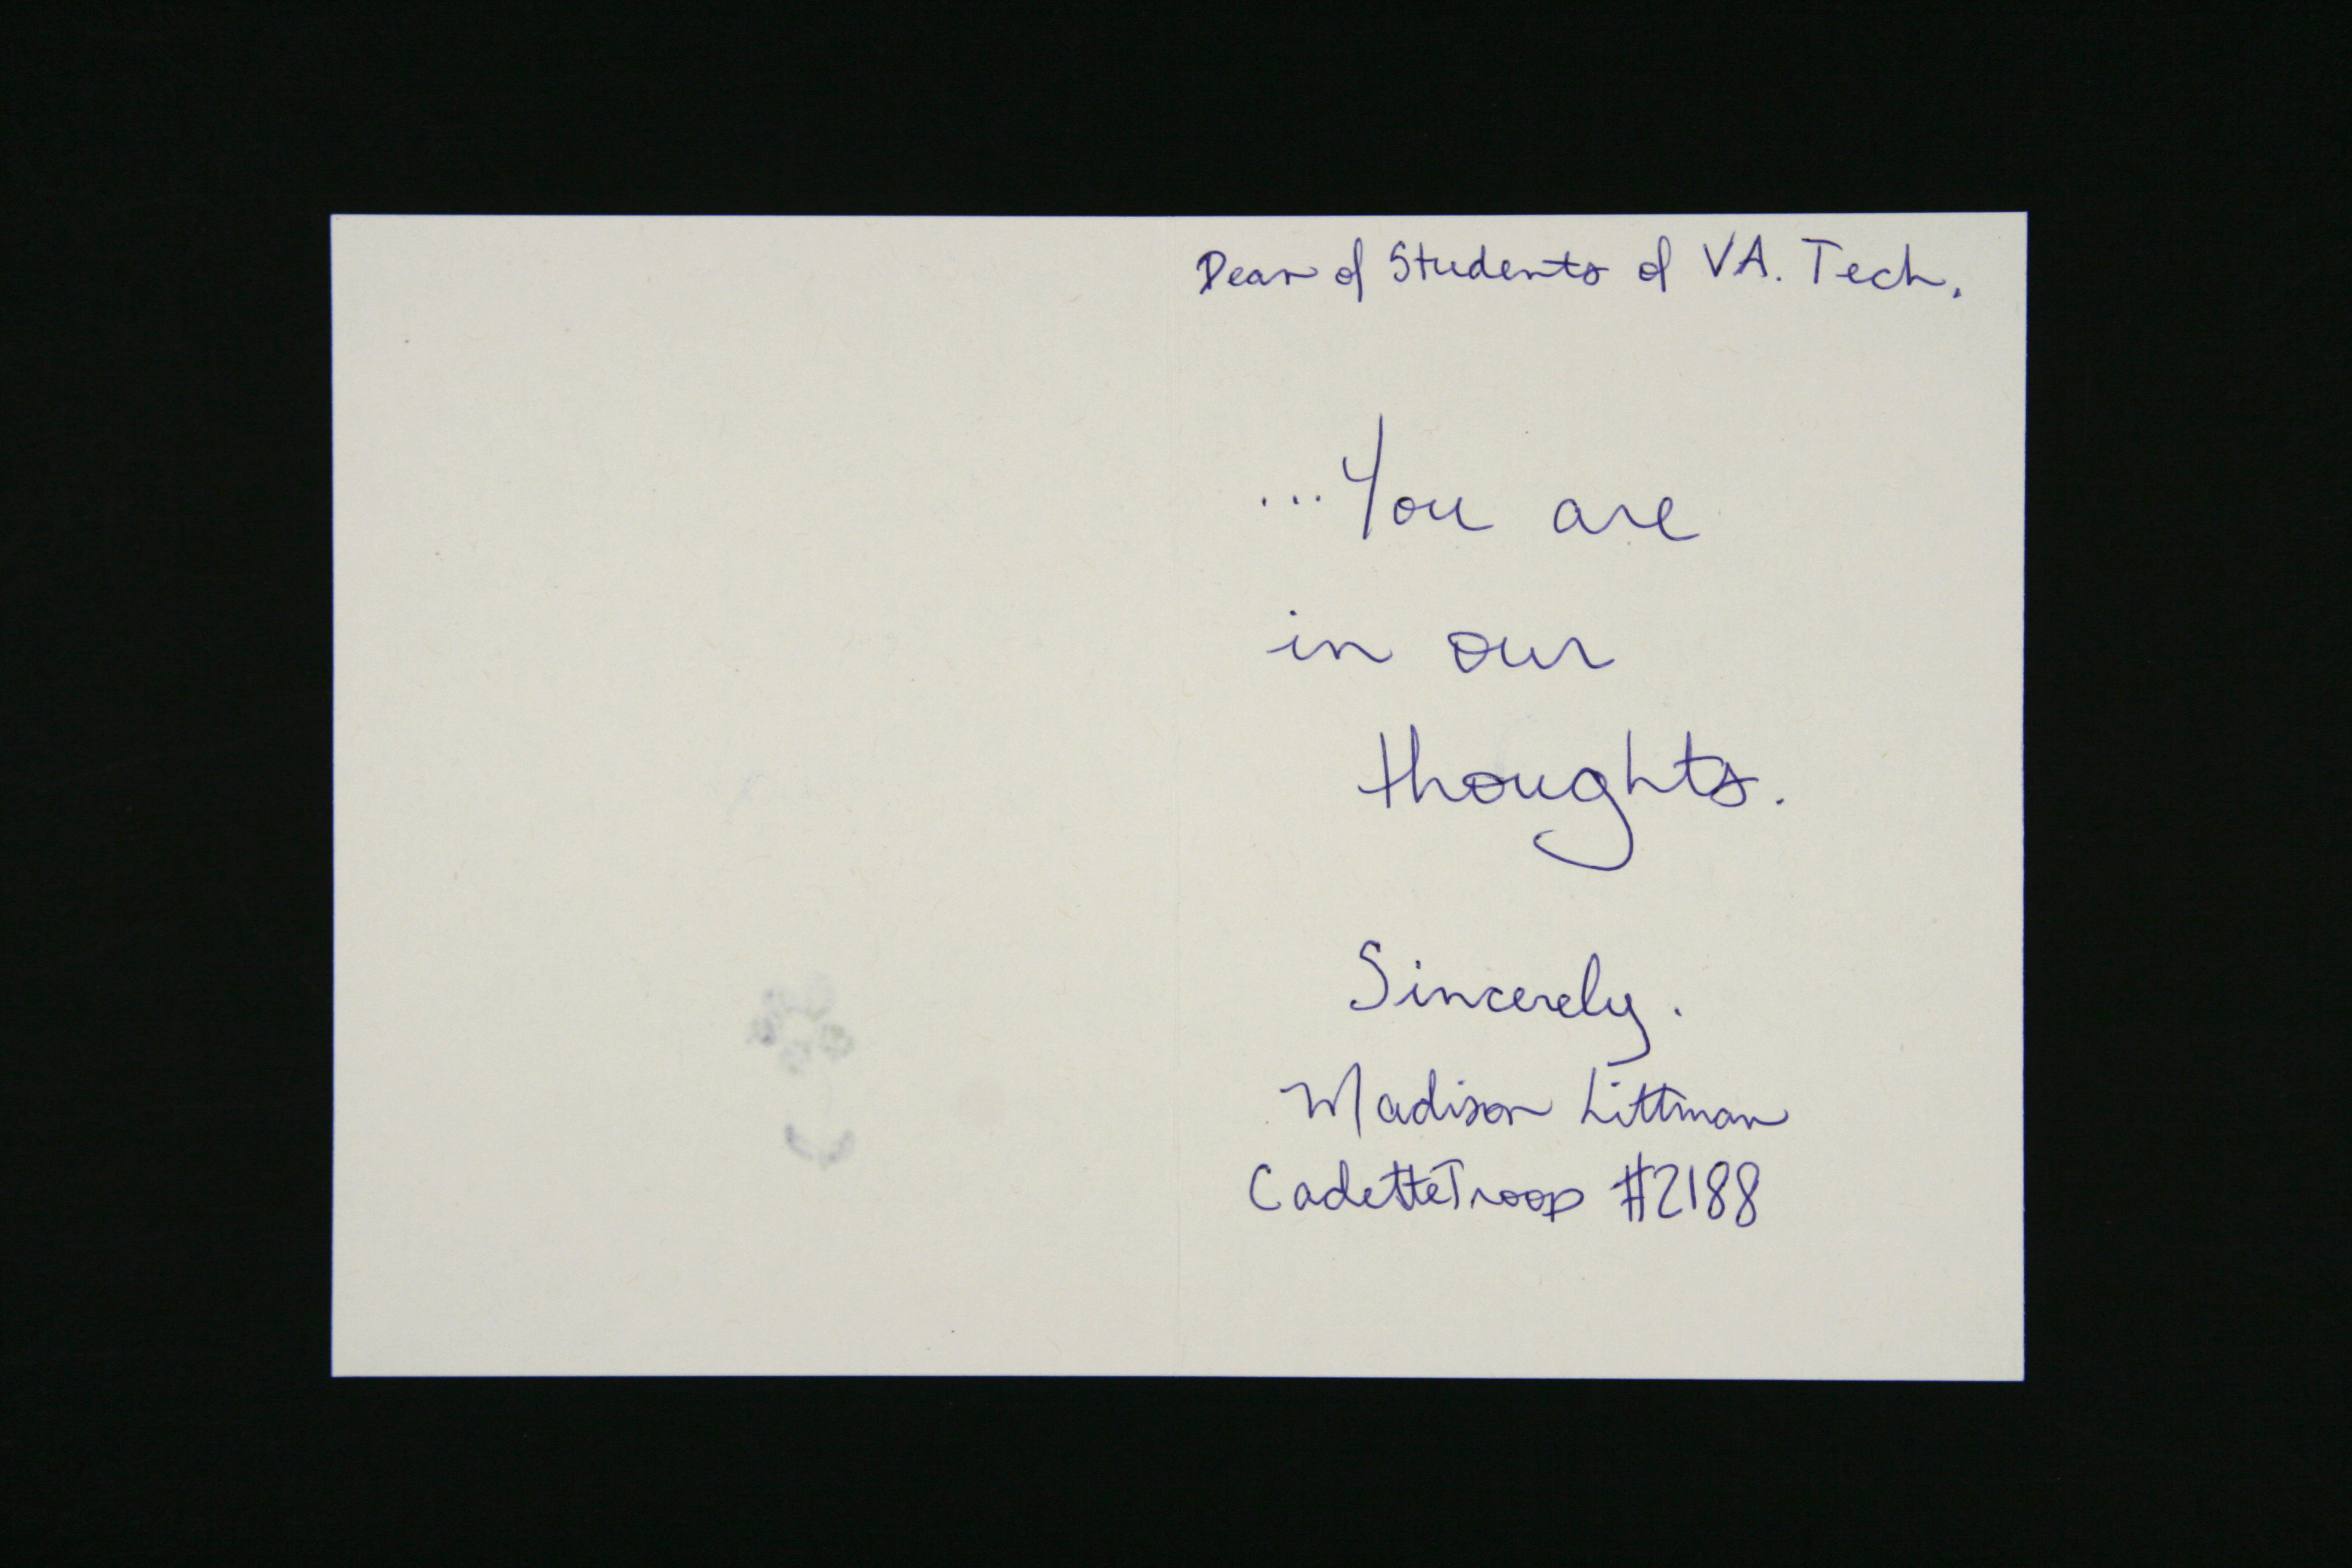 Dean of Students of VA. Tech.
...You are
in our
thoughts.
Sincerely.
Madison Littman
Cadette Troop #2188